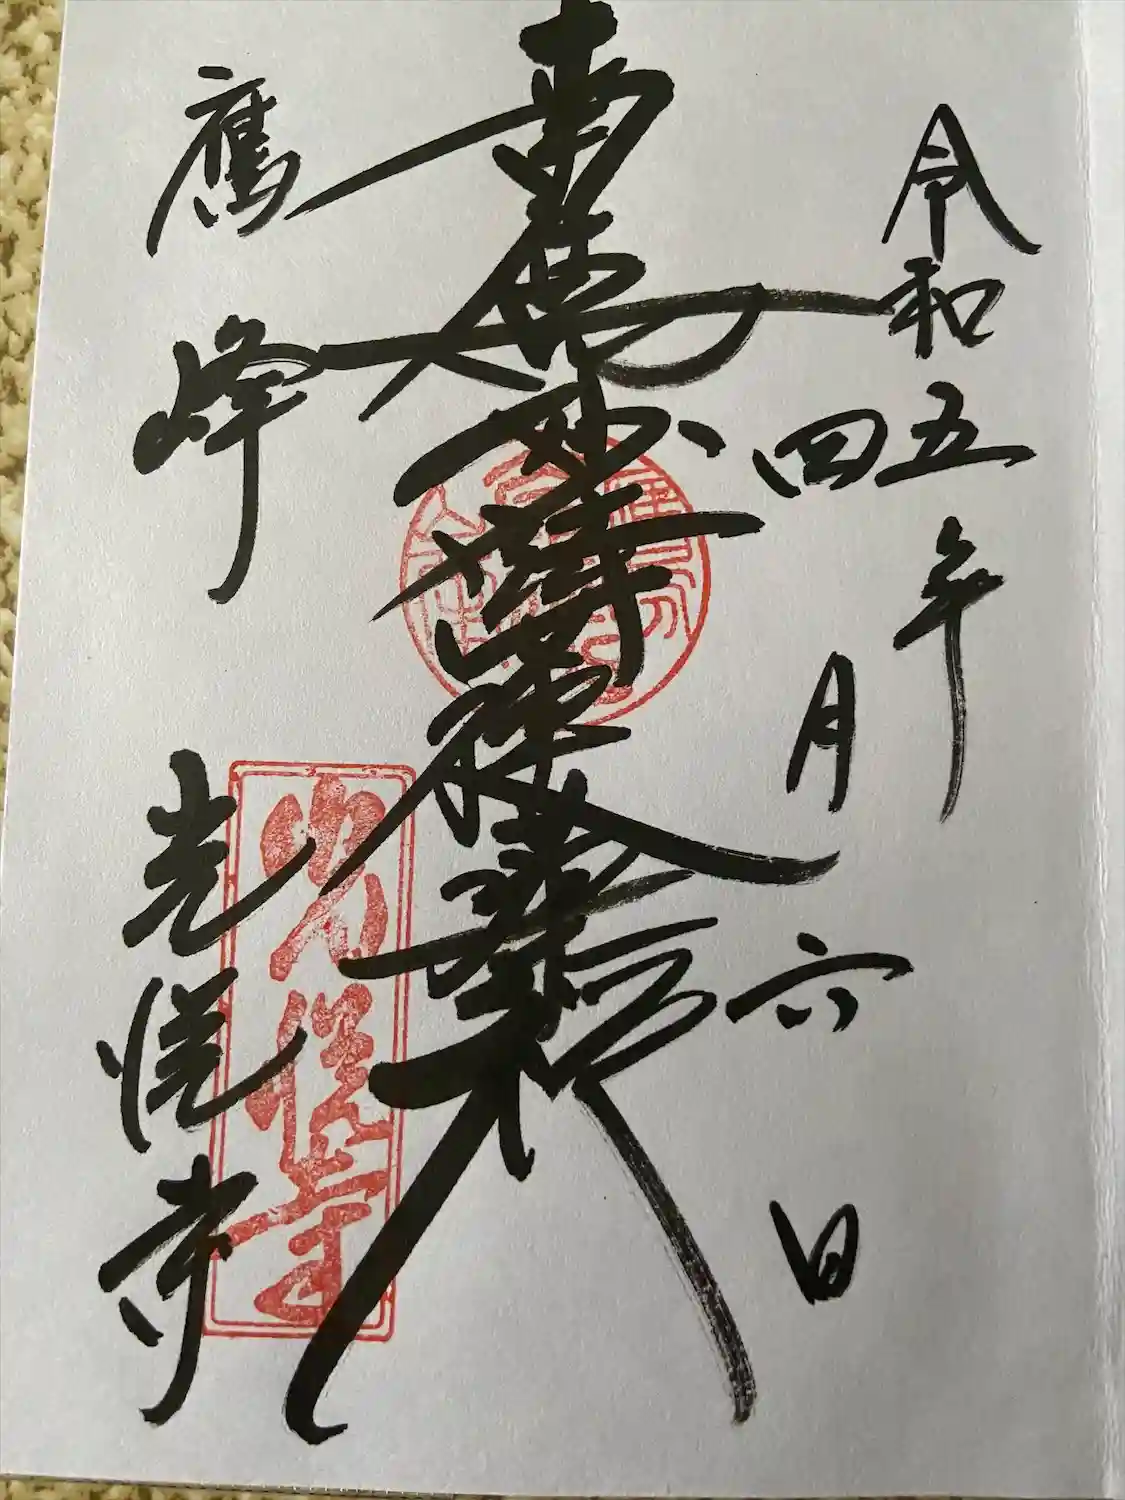 令和五年
四月六日
南無妙法蓮華経
鷹峰
光悦寺
光悦寺